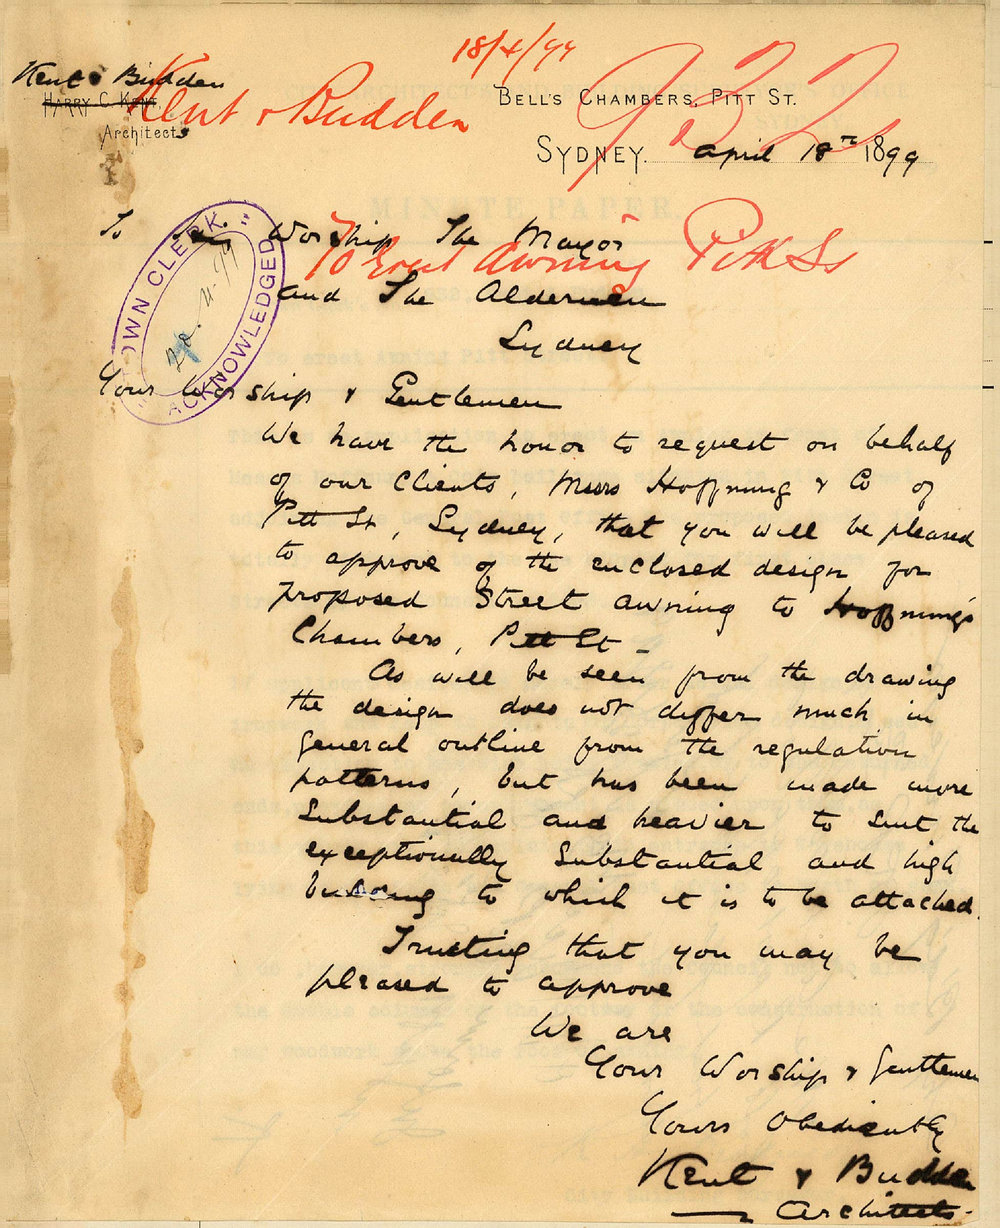 18/4/99
Kent & Budden
HARRY C. KENT,
Architects
Kent & Budden
BELL'S CHAMBERS, PITT ST.
932
SYDNEY. April 18th 1899
MINUTE PAPER.
To Worship The Mayor
To Erect Awning Pitt St
and The Aldermen
Sydney
TOWN CLERK.
20.4.99
ACKNOWLEDGED
Your Worship & Gentlemen
We have the honor to request on behalf
of our Clients, Messrs Hoffnung & Co of
Pitt St, Sydney, that you will be pleased
to approve of the enclosed design for
proposed Street awning to Hoffnung's
Chambers, Pitt St –
As will be seen from the drawing
the design does not differ much in
general outline from the regulation
patterns, but has been made more
substantial and heavier to suit the
exceptionally substantial and high
building to which it is to be attached.
Trusting that you may be
pleased to approve
We are
Your Worship & Gentlemen
Yours obediently
Kent & Budden
Architects.